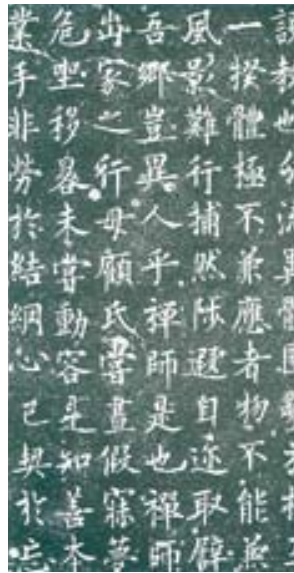 教也分流異體
一揆體極不兼應者物不能兼
風影難行捕然陟遐自迩取譬
吾鄉豈異人乎禪師是也禪師
出家之行母顧氏嘗晝假寐夢
危坐移晷未嘗動容是知善本
業手非勞於結網心已契於忘